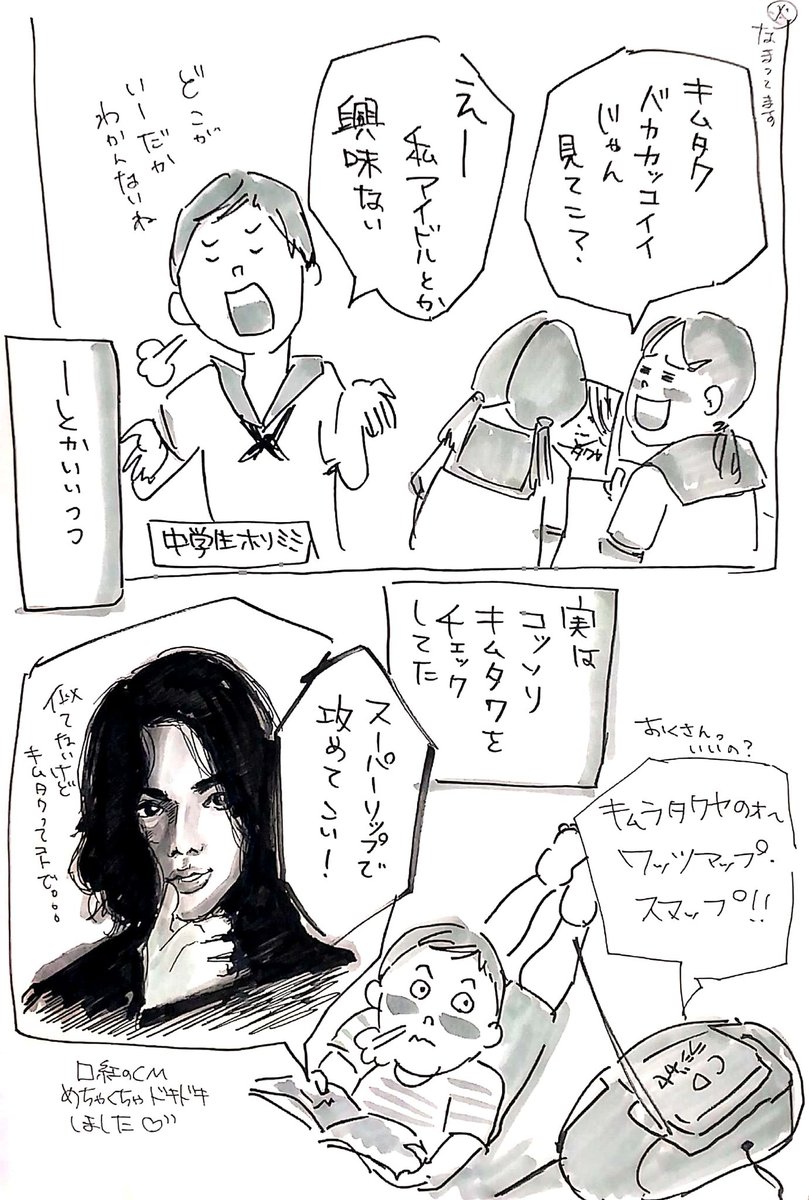 ※
なまってます
キムタク
バカカッコイイ
じゃん
見てこ？
えー
私アイドルとか
興味ない
どこが
いーだか
わかんないね
中学生ホリミミ
ーとかいいつつ
実は
コッソリ
キムタクを
チェック
してた
スーパーリップで
攻めてこい！
似てないけど
キムタクってコトで。。。
おくさんっ
いいの？
キムラタクヤのオ〜
ワッツマップ・
スマップ!!
口紅のCM
めちゃくちゃドキドキ
しました♡
タクヤ